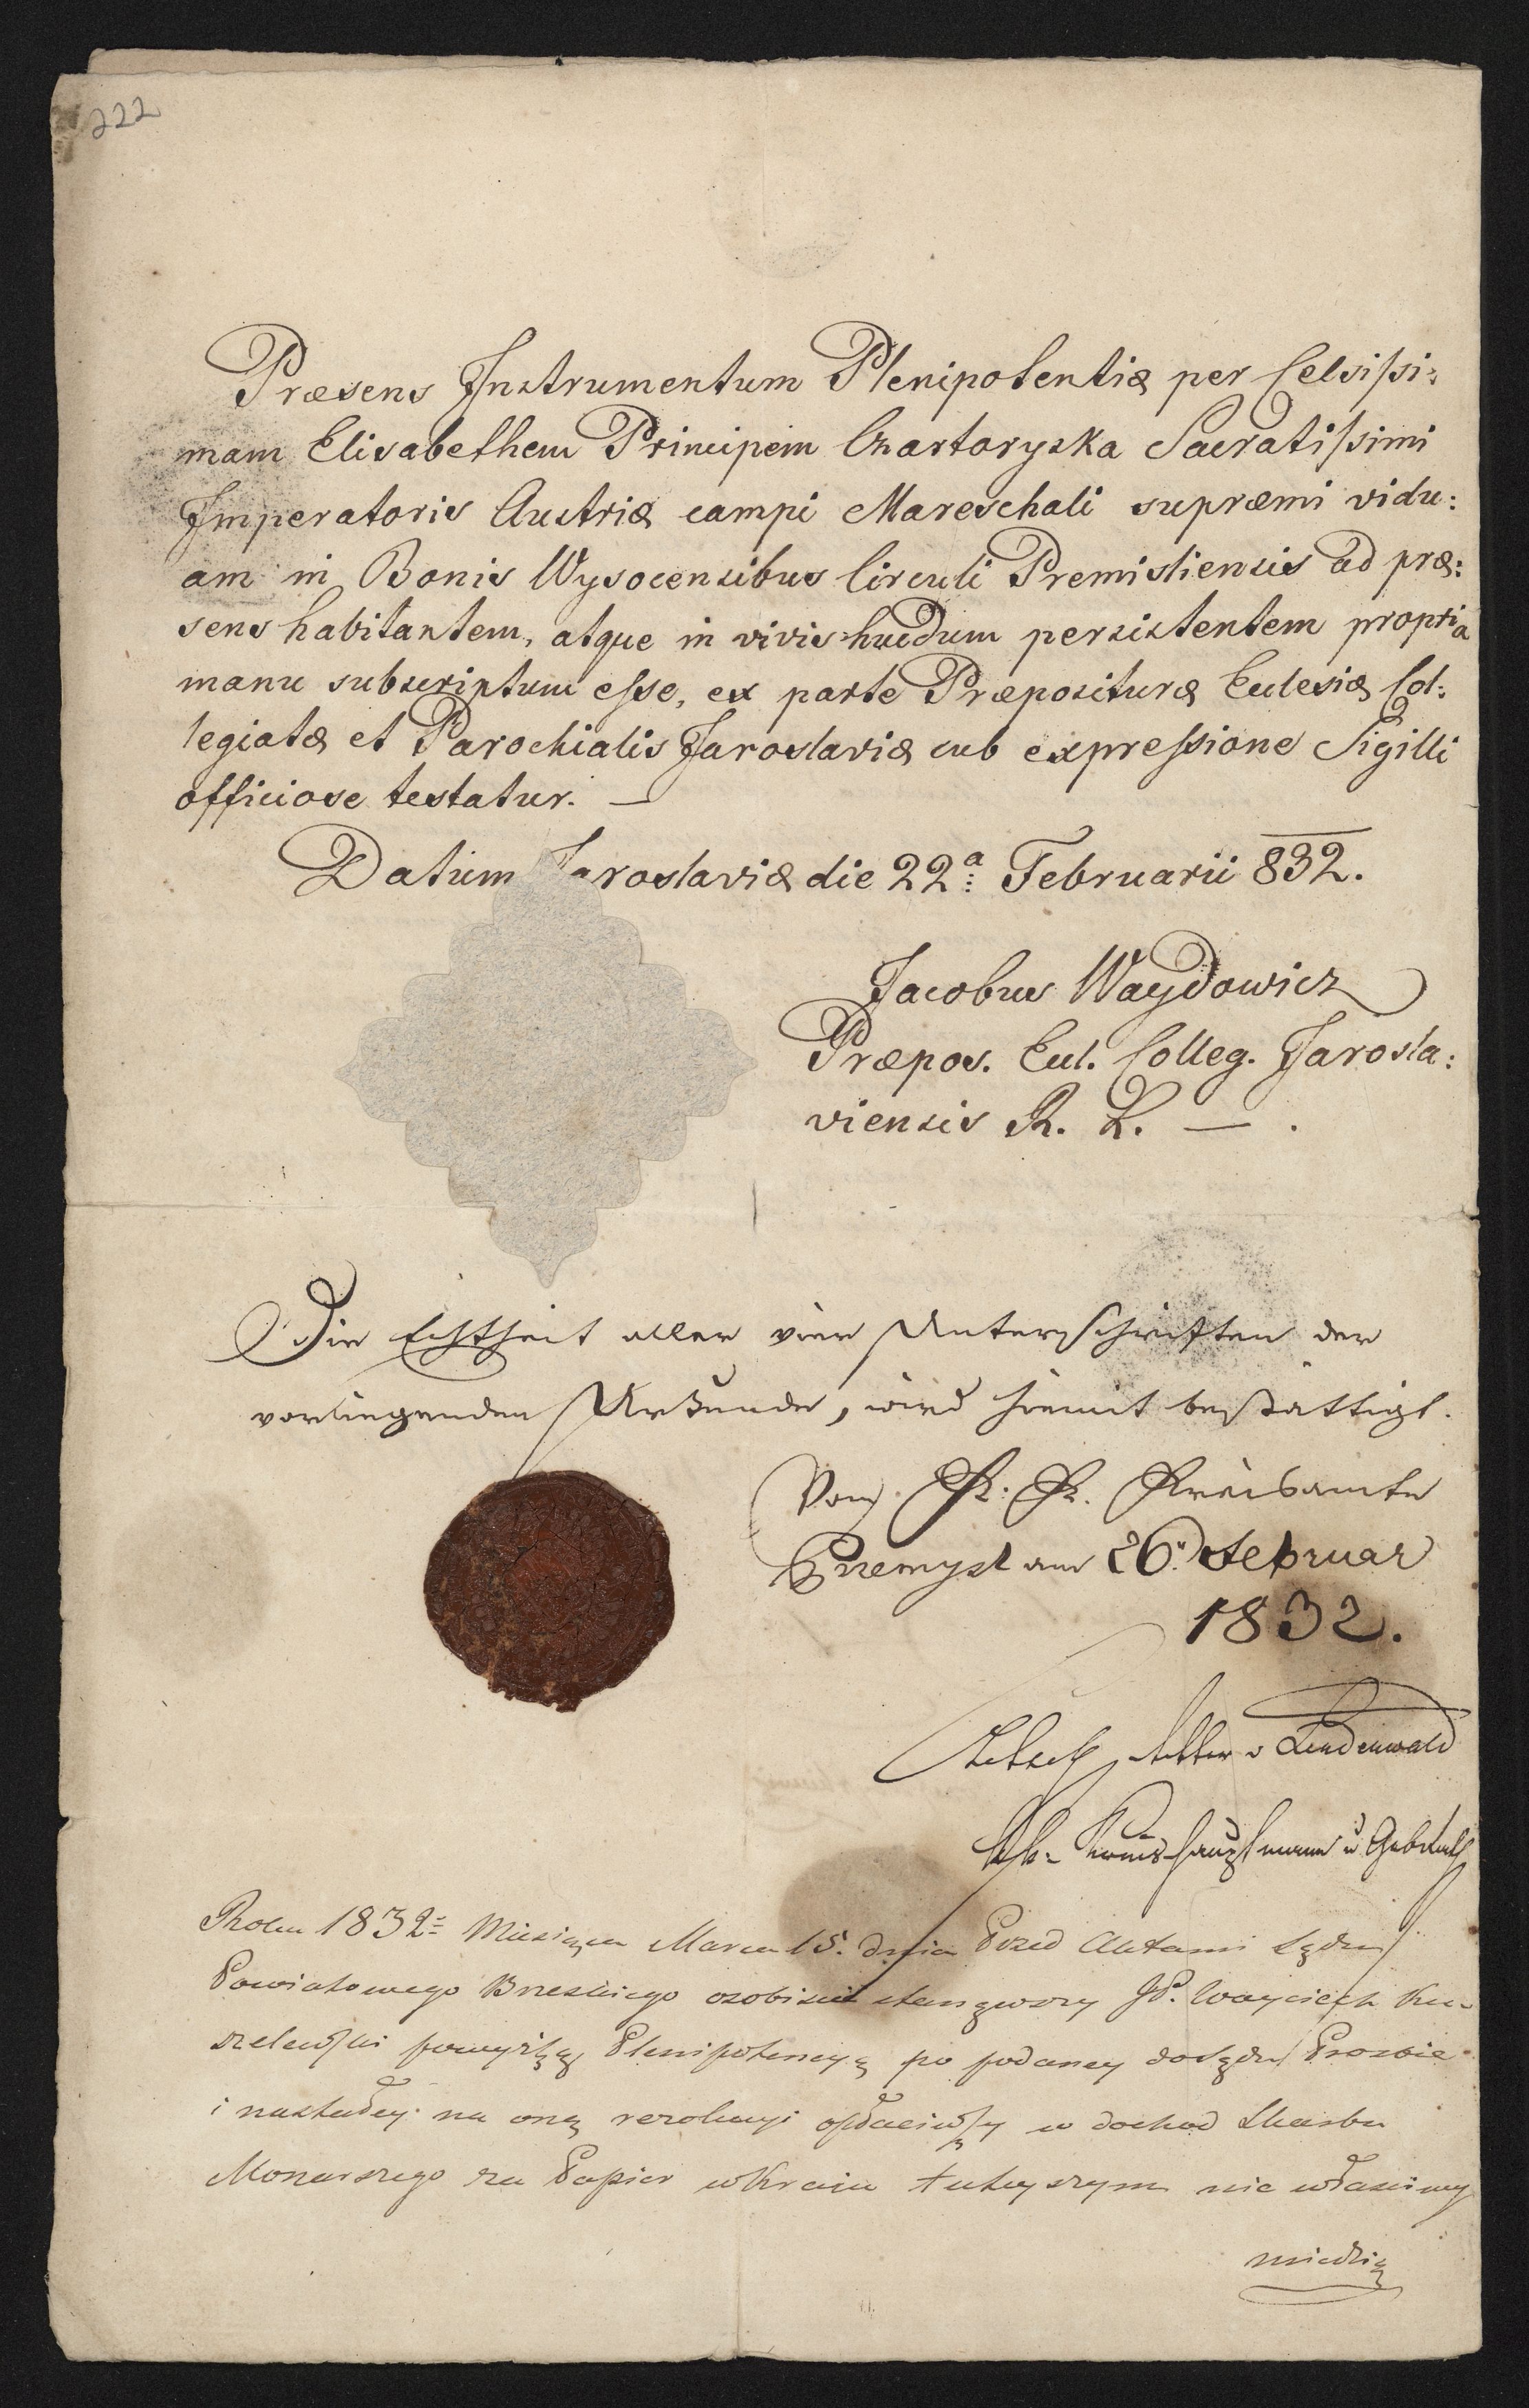 222
Præsens Instrumentum Plenipotentiæ per Celsissi:
mam Elisabetham Principem Czartoryska Sacratissimi
Imperatoris Austriæ campi Mareschali supræmi vidu:
am in Bonis Wysocensibus Circuli Premisliensis ad præ:
sens habitantem, atque in vivis hucdum persistentem propria
manu subscriptum esse, ex parte Præposituræ Eclesiæ Col:
legiatæ et Parochialis Jaroslaviæ sub expressione Sigilli
officiose testatur. —
Datum Jaroslaviæ die 22a: Februarii 832.
Jacobus Waydowicz
Præpos. Ecl. Colleg. Jarosla:
viensis R. L. — .
Die Echtheit aller vier Unterschriften der
vorliegenden Urkunde, wird hiemit bestättigt.
Vom K. K. Kreisamte
Przemysl am 26. Februar
1832.
Ritter v Lindenwald
Kreishauptmann
Roku 1832= Miesiąca Marca 15. dnia Przed Aktami Sądu
Powiatowego Brzeskiego osobiscie stanąwszy JP. Woyciech Ku-
szelewski powyższą Plenipotencyą po podaney do Sądu Prozbie
i nastałey na oną rezolucyi opłaciwszy w dochod Skarbu
Monarszego za Papier w Kraiu tuteyszym nie właściwy
miedzią